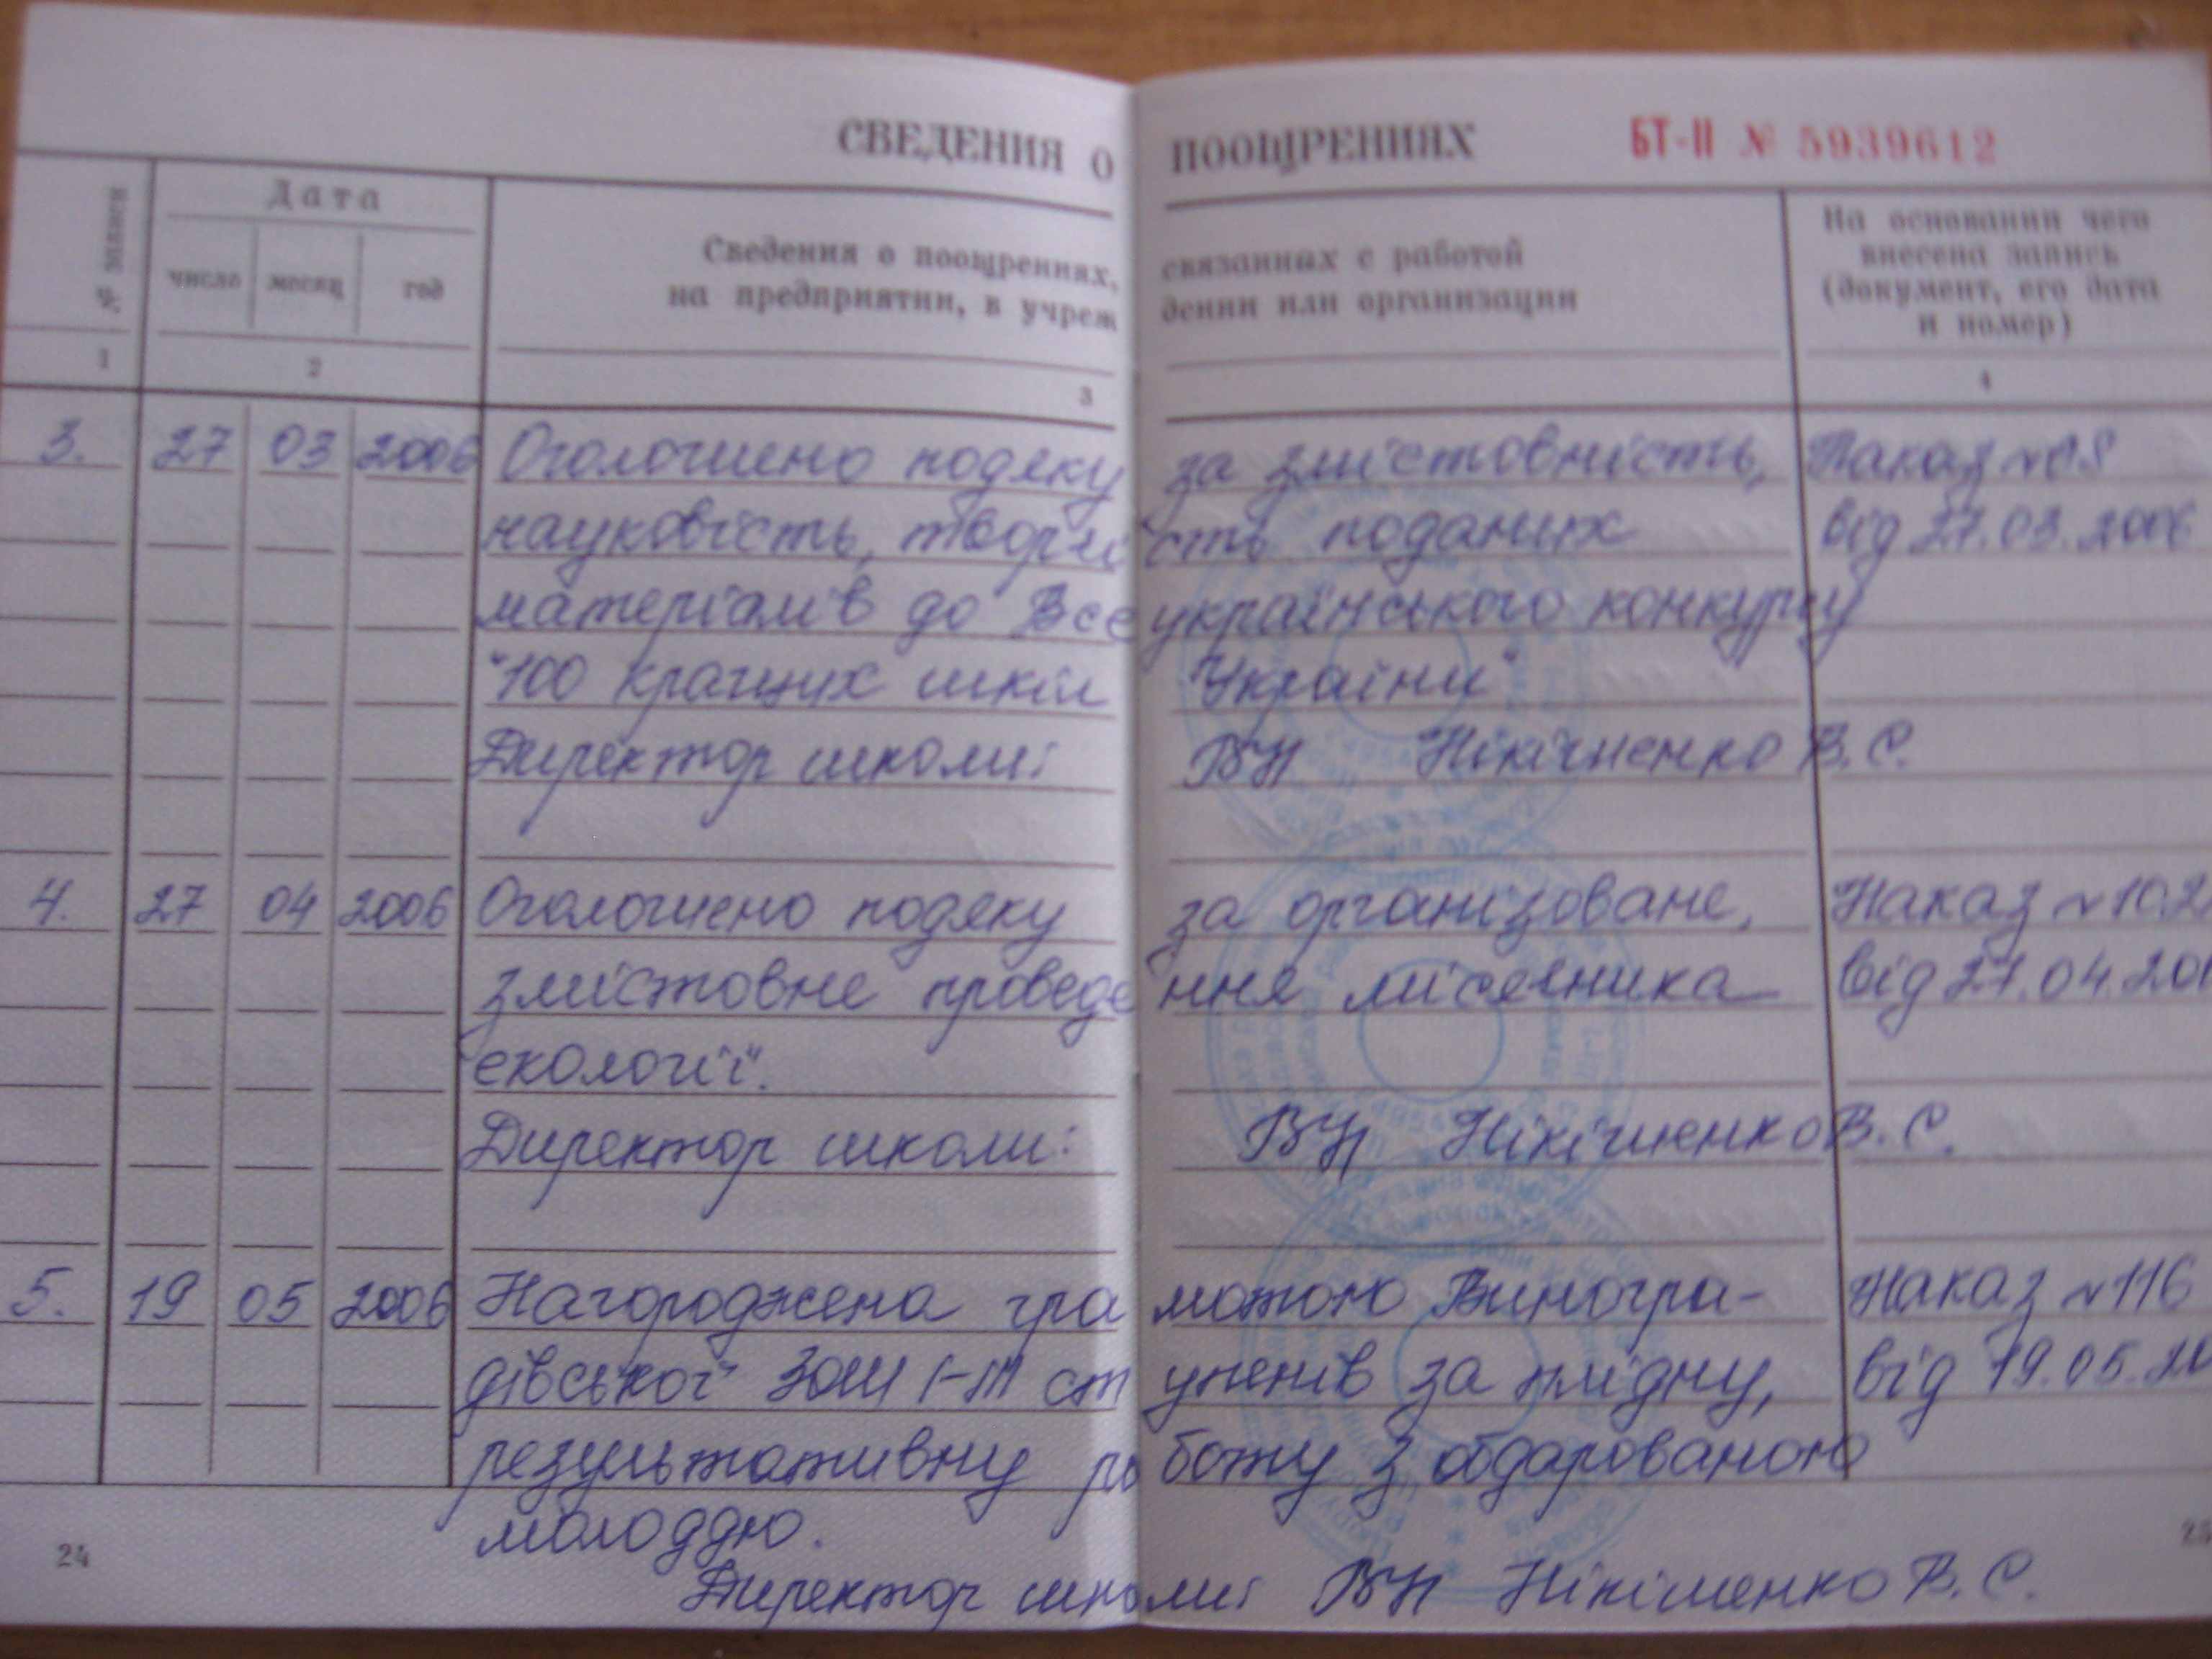 СВЕДЕНИЯ О ПООЩРЕНИЯХ БТ-II № 5939612
№ записи
Дата
число месяц год
Сведения о поощрениях, связанных с работой
на предприятии, в учреж дении или организации
На основании чего
внесена запись
(документ, его дата
и номер)
1 2 3 4
3. 27 03 2006 Оголошено подяку за змістовність, Наказ №
науковість, творчі сть поданих від 27.03.2006
матеріалів до Все українського конкурсу
"100 кращих шкіл України"
Директор школи: Нікішенко В.С.
4. 27 04 2006 Оголошено подяку за організоване, Наказ №102
змістовне проведе ння місячника від 27.04.200
екології".
Директор школи: Нікішенко В.С.
5. 19 05 2006 Нагороджена гра мотою Виногра- Наказ №116
дівської ЗОШ I-III ст упенів за плідну, від 19.05.20
результативну ро боту з обдарованою
молоддю.
Директор шко ли: Нікішенко В.С.
24
25